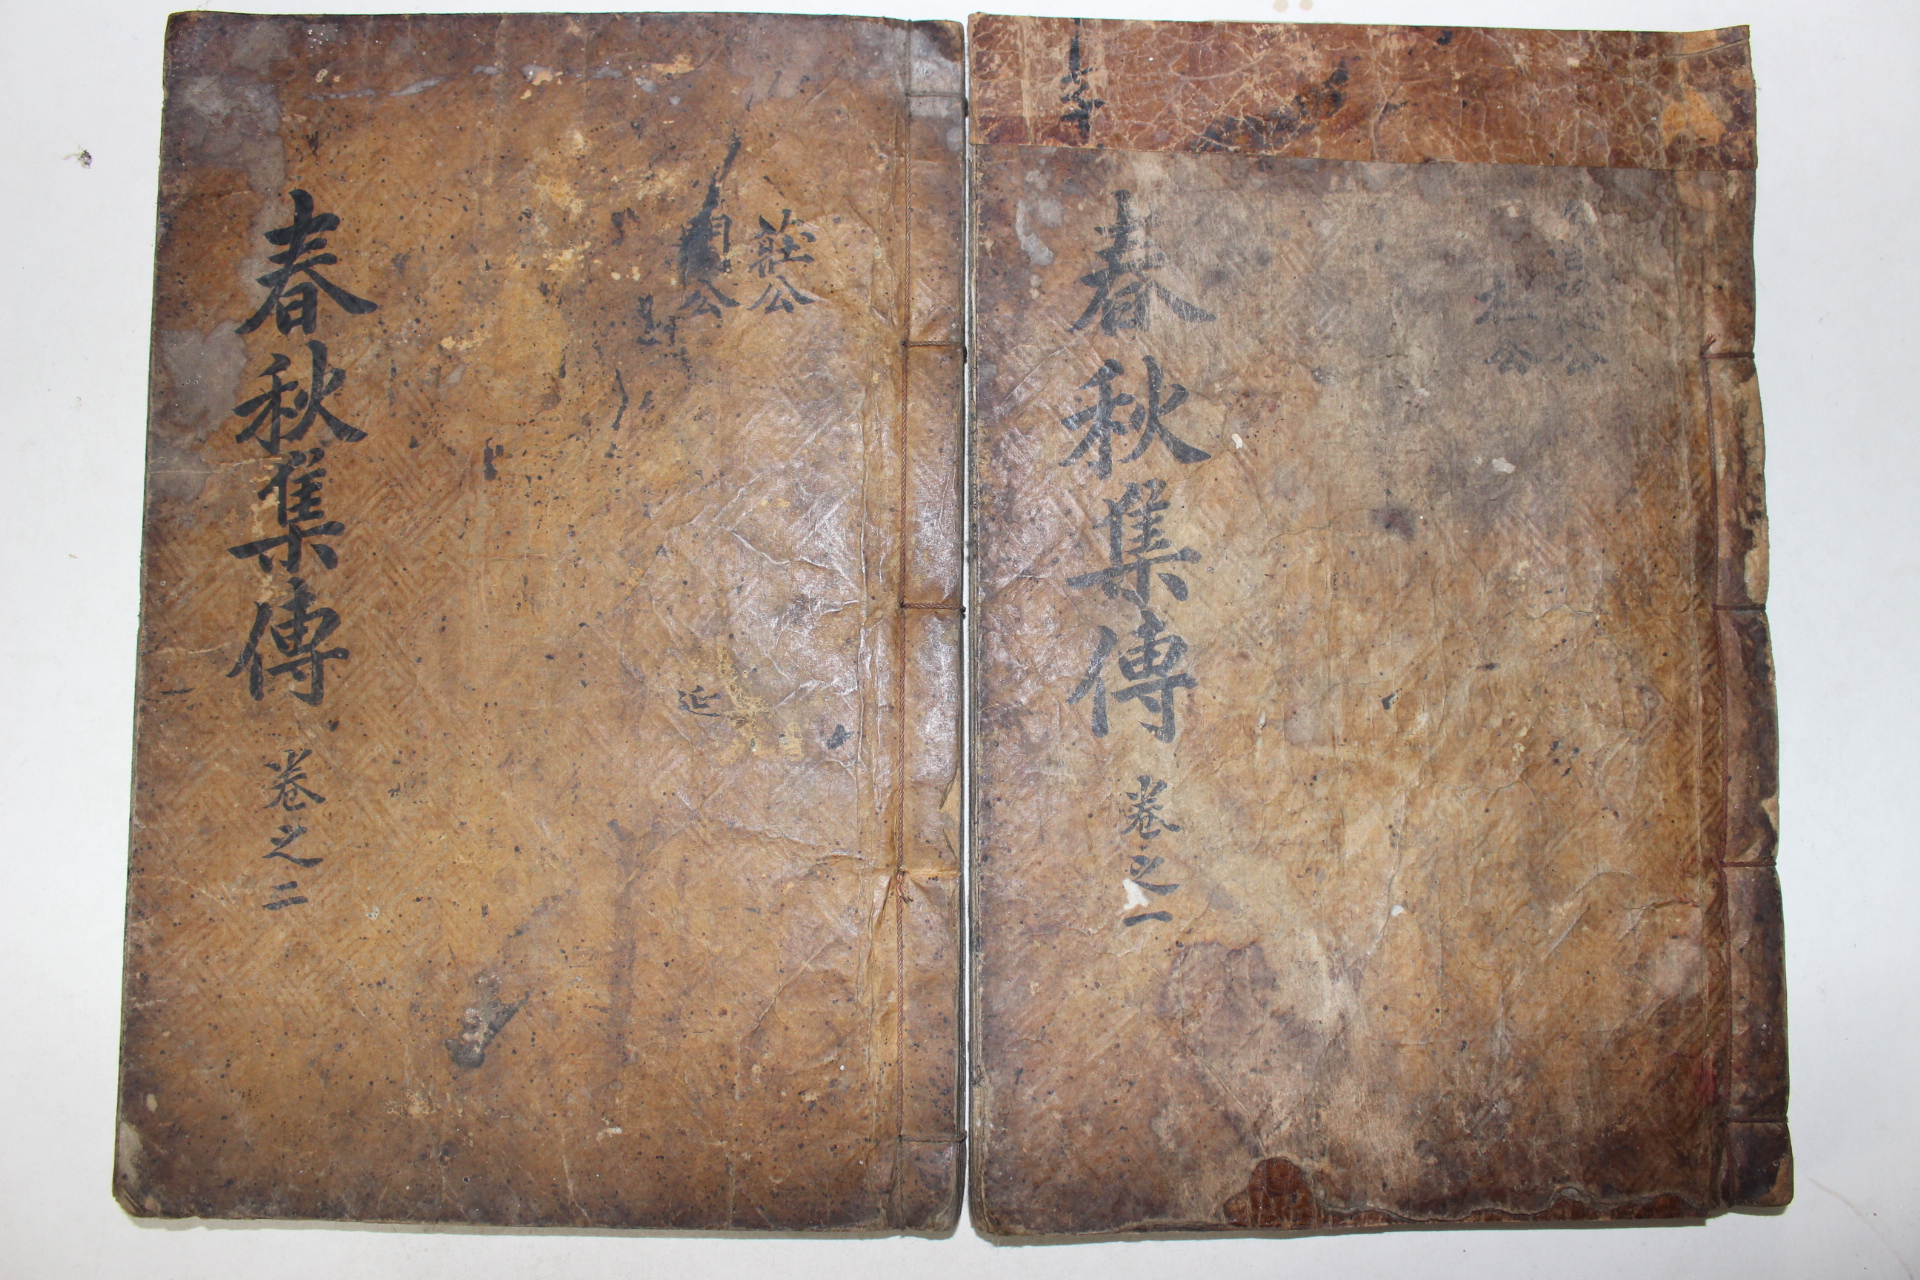 春秋集傳 卷之一
公
桓公
莊公
閔公
春秋集傳 卷之二